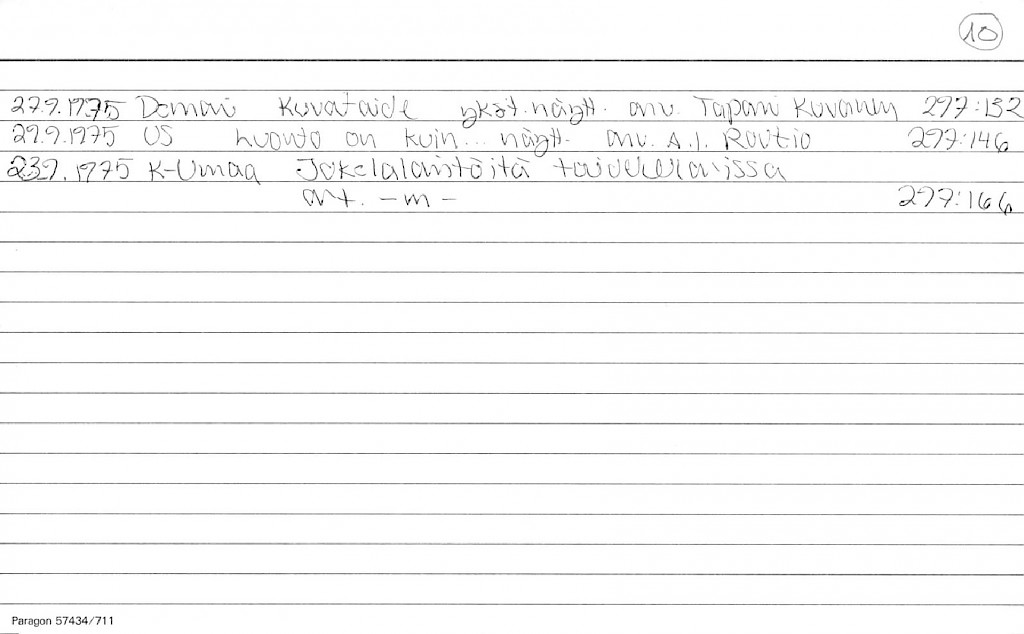 10
27.9.1975 Demari Kuvataide yksit.näytt. arv. Tapani Kovanen 297:132
29.9.1975 US Luonto on kuin... näytt. arv. A.I. Routio 297:146
23.9.1975 K-Umaa Jokelalaistöitä taidelainissa
art. -m- 297:166
Paragon 57434/711